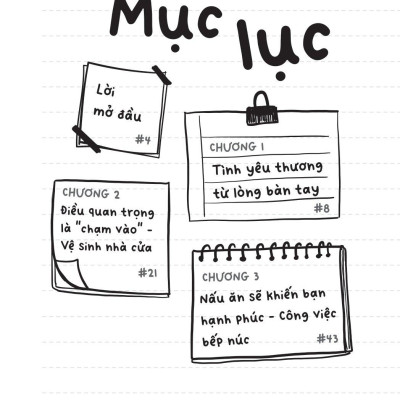 Mục lục
Lời
mở đầu
#4
CHƯƠNG 1
Tình yêu thương
từ lòng bàn tay
#8
CHƯƠNG 2
Điều quan trọng
là "chạm vào" -
Vệ sinh nhà cửa
#21
CHƯƠNG 3
Nấu ăn sẽ khiến bạn
hạnh phúc - Công việc
bếp núc
#43